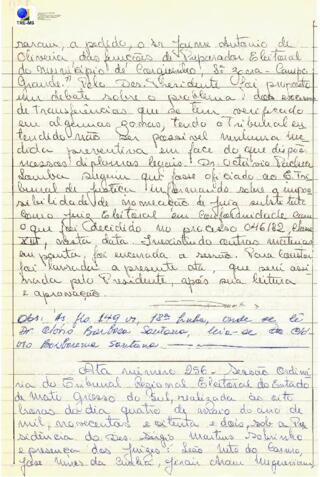 TRE-MS
raram, a pedido, o Sr. Jayme Antônio de
Oliveira das funções de Preparador Eleitoral
do Município de Corguinho, 8ª Zona - Campo
Grande. Pelo Des. Presidente foi proposto
um debate sobre o problema: dos
de transferências que se têm verificado
em algumas zonas, tendo o Tribunal en
tendido não ser possível nenhuma me
dida preventiva em face do que dispõe
nossos diplomas legais. Dr.
sugeriu que fosse oficiado ao E. Tri
bunal de Justiça informando sobre a impos
sibilidade de nomeação de juiz substituto
como Juiz Eleitoral em conformidade com
o que foi decidido no processo 046/82, classe
XIII, nesta data. Inexistindo outras matérias
em pauta, foi encerrada a sessão. Para constar
foi lavrada a presente ata, que será assi
nada pelo Presidente, após sua leitura
e aprovação.
Obs: Às fls. 149 vs, 18ª linha, onde se lê
Dr. Barbosa Santana, leia-se
Santana.
Ata número 256 - Sessão Ordiná
ria do Tribunal Regional Eleitoral do Estado
de Mato Grosso do Sul, realizada às oito
horas do dia quatro de março do ano de
mil, novecentos e oitenta e dois, sob a Pre
sidência do Des. Sérgio Martins Sobrinho
e presença dos Juízes: Leão Neto do Carmo,
José Nunes da Cunha,